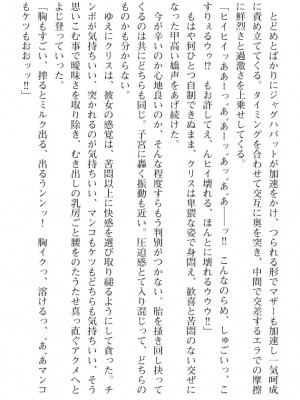 とどめとばかりにジャグ・パットが加速をかけ、つられる形でマザーも加速し一気呵成
に責め立ててくる。タイミングを合わせて交互に奥を突き、中間で交差するエラでの摩擦
に鮮烈さと過激さを上乗せしてくる。
「ヒイッヒィぁあーっ、あ゙ッ、あ゙ぁ――ッ!! こんなのらめ、しゅごいっ、こ
すりぇるぅウゥ!? もお許してぇ、んヒイ壊れる、ほんとに壊れるウウウ!!」
もはや何ひとつ自制できぬまま、クリスは卑猥な姿で身悶え、歓喜と苦悶のない交ぜに
なった甲高い嬌声をあげ続けた。
今が辛いのか心地良いのか、そんな程度すらもう判別がつかない。胎を掻き回し抉って
くるのは共にどちらも同じ。子宮に轟く振動も近い。圧迫感とて入り混じって、どちらの
ものかも分からない。
ゆえにクリスは、彼女の感覚は、苦悶以上に快感を選び取り縋るようにして貪った。チ
ンポが気持ちいい、突かれるのが気持ちいい、マンコもケツもどちらも気持ちいい、そう
思いこむ事で曖昧さを取り除き、むき出しの乳房ごと腰をのたうたせ真っ直ぐアクメへと
よじ登っていった。
「胸もすごい、搾るとミルク出る、出るうンンッ! 胸イクっ、溶けるっ、あ゙、あ゙マンコ
もケツもおおッ!!」